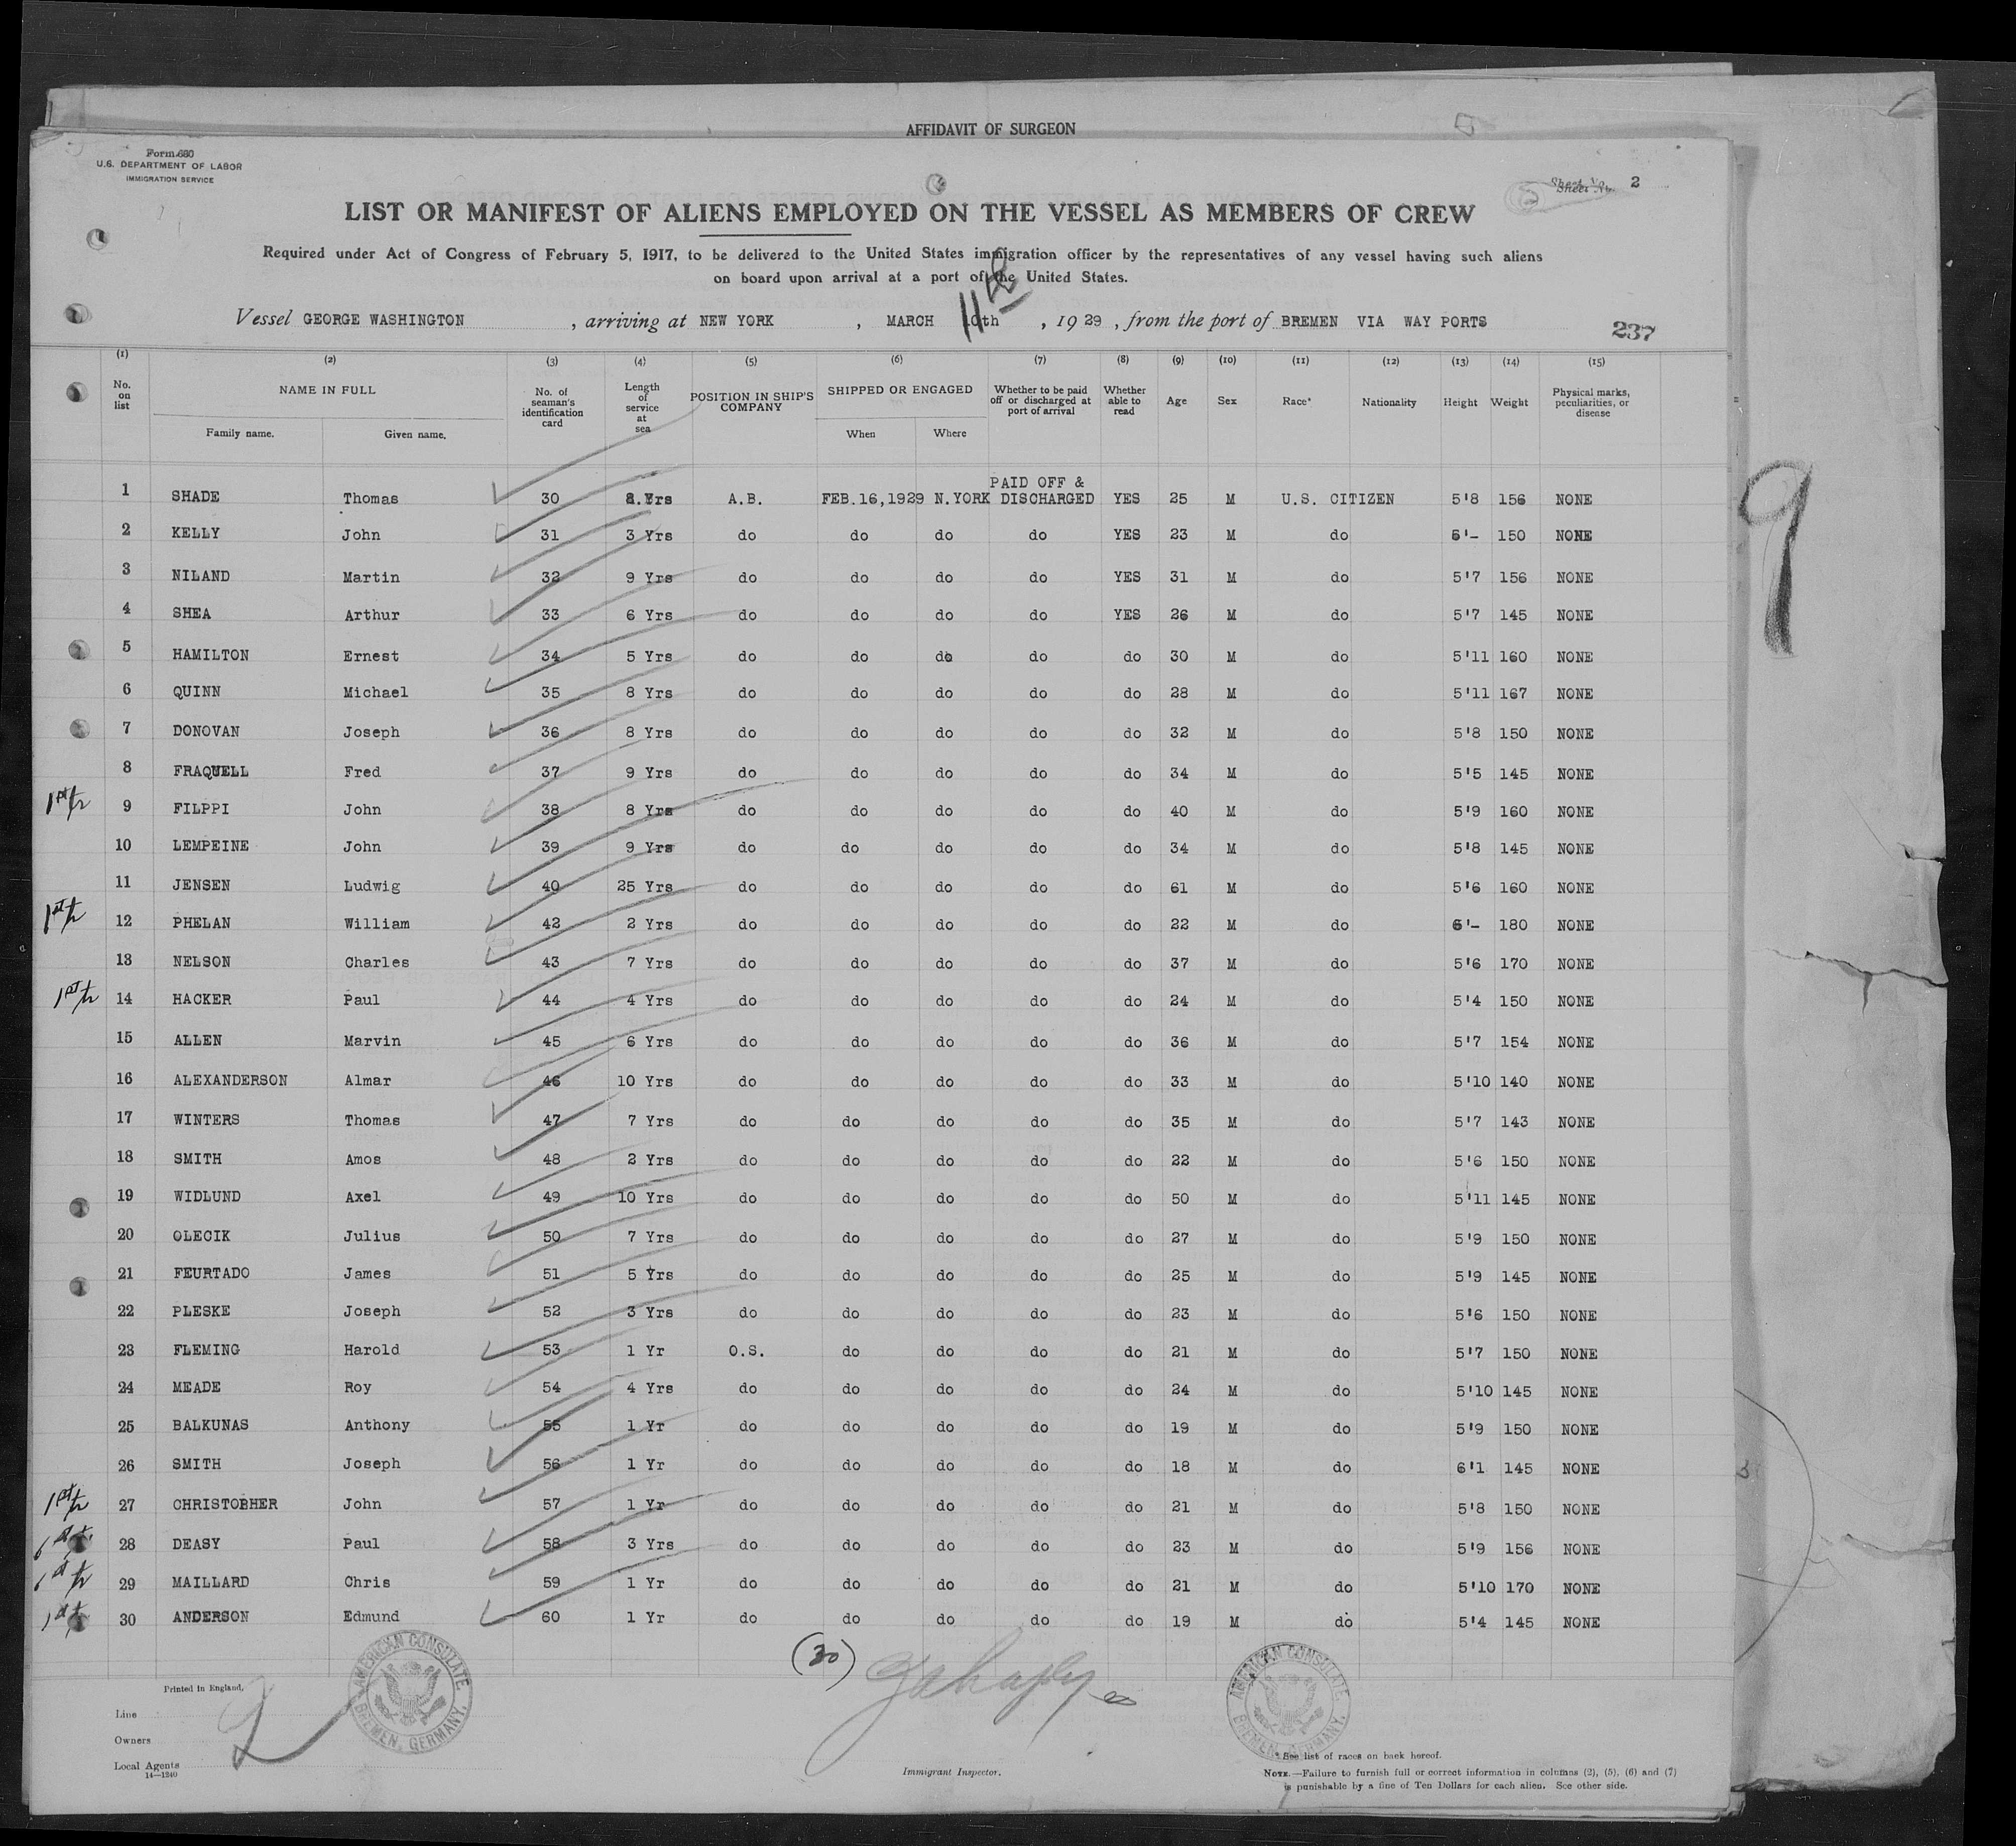 AFFIDAVIT OF SURGEON
Form 680
U.S. DEPARTMENT OF LABOR
IMMIGRATION SERVICE
Sheet No. 2
LIST OR MANIFEST OF ALIENS EMPLOYED ON THE VESSEL AS MEMBERS OF CREW
Required under Act of Congress of February 5, 1917, to be delivered to the United States immigration officer by the representatives of any vessel having such aliens
on board upon arrival at a port of the United States.
Vessel GEORGE WASHINGTON , arriving at NEW YORK , MARCH 11th 10th , 1929 , from the port of BREMEN VIA WAY PORTS
237
(1) (2) (3) (4) (5) (6) (7) (8) (9) (10) (11) (12) (13) (14) (15)
No. on list NAME IN FULL Family name. Given name. No. of seaman's identification card Length of service at sea POSITION IN SHIP'S COMPANY SHIPPED OR ENGAGED When Where Whether to be paid off or discharged at port of arrival Whether able to read Age Sex Race* Nationality Height Weight Physical marks, peculiarities, or disease
1 SHADE Thomas 30 8 Yrs A.B. FEB.16,1929 N.YORK PAID OFF & DISCHARGED YES 25 M U.S. CITIZEN 5'8 156 NONE
2 KELLY John 31 3 Yrs do do do do YES 23 M do 6'- 150 NONE
3 NILAND Martin 32 9 Yrs do do do do YES 31 M do 5'7 156 NONE
4 SHEA Arthur 33 6 Yrs do do do do YES 26 M do 5'7 145 NONE
5 HAMILTON Ernest 34 5 Yrs do do do do do 30 M do 5'11 160 NONE
6 QUINN Michael 35 8 Yrs do do do do do 28 M do 5'11 167 NONE
7 DONOVAN Joseph 36 8 Yrs do do do do do 32 M do 5'8 150 NONE
8 FRAQUELL Fred 37 9 Yrs do do do do do 34 M do 5'5 145 NONE
9 FILPPI John 38 8 Yrs do do do do do 40 M do 5'9 160 NONE
10 LEMPEINE John 39 9 Yrs do do do do do 34 M do 5'8 145 NONE
11 JENSEN Ludwig 40 25 Yrs do do do do do 61 M do 5'6 160 NONE
12 PHELAN William 42 2 Yrs do do do do do 22 M do 6'- 180 NONE
13 NELSON Charles 43 7 Yrs do do do do do 37 M do 5'6 170 NONE
14 HACKER Paul 44 4 Yrs do do do do do 24 M do 5'4 150 NONE
15 ALLEN Marvin 45 6 Yrs do do do do do 36 M do 5'7 154 NONE
16 ALEXANDERSON Almar 46 10 Yrs do do do do do 33 M do 5'10 140 NONE
17 WINTERS Thomas 47 7 Yrs do do do do do 35 M do 5'7 143 NONE
18 SMITH Amos 48 2 Yrs do do do do do 22 M do 5'6 150 NONE
19 WIDLUND Axel 49 10 Yrs do do do do do 50 M do 5'11 145 NONE
20 OLECIK Julius 50 7 Yrs do do do do do 27 M do 5'9 150 NONE
21 FEURTADO James 51 5 Yrs do do do do do 25 M do 5'9 145 NONE
22 PLESKE Joseph 52 3 Yrs do do do do do 23 M do 5'6 150 NONE
23 FLEMING Harold 53 1 Yr O.S. do do do do 21 M do 5'7 150 NONE
24 MEADE Roy 54 4 Yrs do do do do do 24 M do 5'10 145 NONE
25 BALKUNAS Anthony 55 1 Yr do do do do do 19 M do 5'9 150 NONE
26 SMITH Joseph 56 1 Yr do do do do do 18 M do 6'1 145 NONE
27 CHRISTOPHER John 57 1 Yr do do do do do 21 M do 5'8 150 NONE
28 DEASY Paul 58 3 Yrs do do do do do 23 M do 5'9 156 NONE
29 MAILLARD Chris 59 1 Yr do do do do do 21 M do 5'10 170 NONE
30 ANDERSON Edmund 60 1 Yr do do do do do 19 M do 5'4 145 NONE
(30)
AMERICAN CONSULATE BREMEN, GERMANY.
AMERICAN CONSULATE BREMEN, GERMANY.
Printed in England.
Line
Owners
Local Agents
14—1240
Immigrant Inspector.
* See list of races on back hereof.
NOTE.—Failure to furnish full or correct information in columns (2), (5), (6) and (7)
is punishable by a fine of Ten Dollars for each alien. See other side.
9